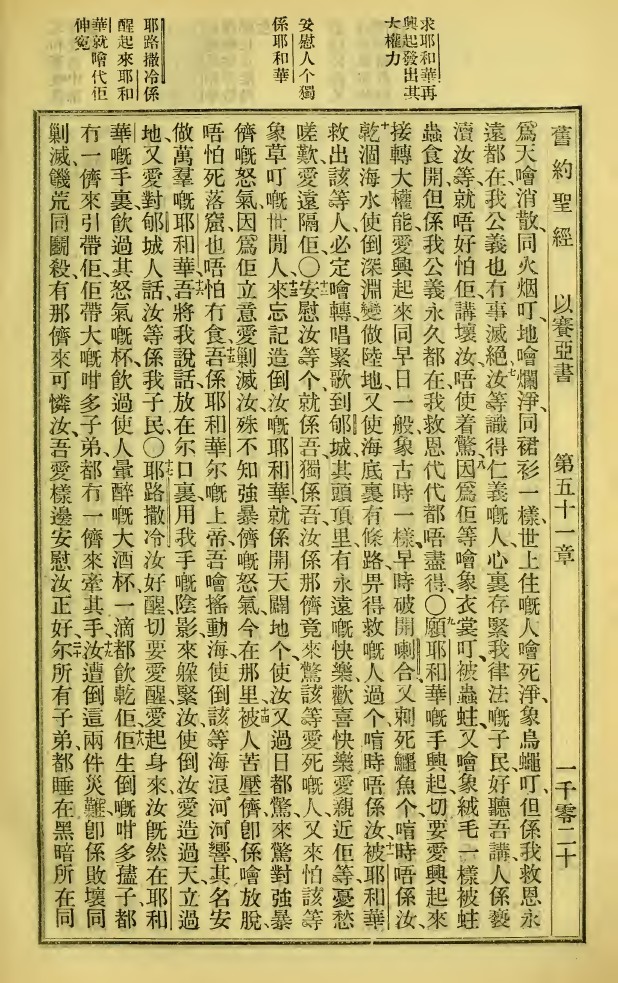 舊約聖經 以賽亞書 第五十一章 一千零二十
求耶和華再
興起發出其
大權力
安慰人个獨
係耶和華
耶路撒冷係
醒起來耶和
華就噲代佢
伸寃
爲天噲消散、同火烟叮、地噲爛淨、同裙衫一樣、世上住嘅人噲死淨、象烏蠅叮、但係我救恩永
遠都在、我公義也冇事滅絕、七汝等識得仁義嘅人、心裏存緊我律法嘅子民、好聽吾講、人係褻
瀆汝等、就唔好怕、佢講壞汝、唔使着驚、八因爲佢等噲象衣裳叮被蟲蛀、又噲象絨毛一樣被蛀
蟲食開、但係我公義永久都在、我救恩代代都唔盡得、〇九願耶和華嘅手興起、切要愛興起來
接轉大權能、愛興起來同早日一般、象古時一樣、早時破開喇合、又刺死鱷魚个、唷時唔係汝、
十乾涸海水、使倒深淵變做陸地、又使海底裏有條路、畀得救嘅人過个、唷時唔係汝、十一被耶和華
救出該等人、必定噲轉、唱緊歌到郇城、其頭頂里有永遠嘅快樂、歡喜快樂、愛親近佢等、憂愁
嗟歎、愛遠隔佢、〇十二安慰汝等个、就係吾、獨係吾、汝係那儕、竟來驚該等愛死嘅人、又來怕該等
象草叮嘅世間人、十三來忘記造倒汝嘅耶和華、就係開天闢地个、使汝又過日都驚、來驚對強暴
儕嘅怒氣、因爲佢立意愛剿滅汝、殊不知強暴儕嘅怒氣、今在那里、十四被人苦壓儕卽係噲放脫、
唔怕死落窟、也唔怕冇食、十五吾係耶和華尔嘅上帝、吾噲搖動海、使倒該等海浪河河響、其名安
做萬羣嘅耶和華、十六吾將我說話放在尔口裏、用我手嘅陰影來躲緊汝、使倒汝愛造過天、立過
地、又愛對郇城人話、汝等係我子民、〇十七耶路撒冷汝好醒、切要愛醒、愛起身來、汝旣然在耶和
華嘅手裏、飲過其怒氣嘅杯、飲過使人暈醉嘅大酒杯、一滴都飲乾佢、十八佢生倒嘅咁多孻子、都
冇一儕來引帶佢、佢帶大嘅咁多子弟、都冇一儕來牽其手、十九汝遭倒這兩件災難、卽係敗壞同
剿滅、饑荒同鬭殺、有那儕來可憐汝、吾愛樣邊安慰汝正好、二十尔所有子弟、都睡在黑暗所在、同